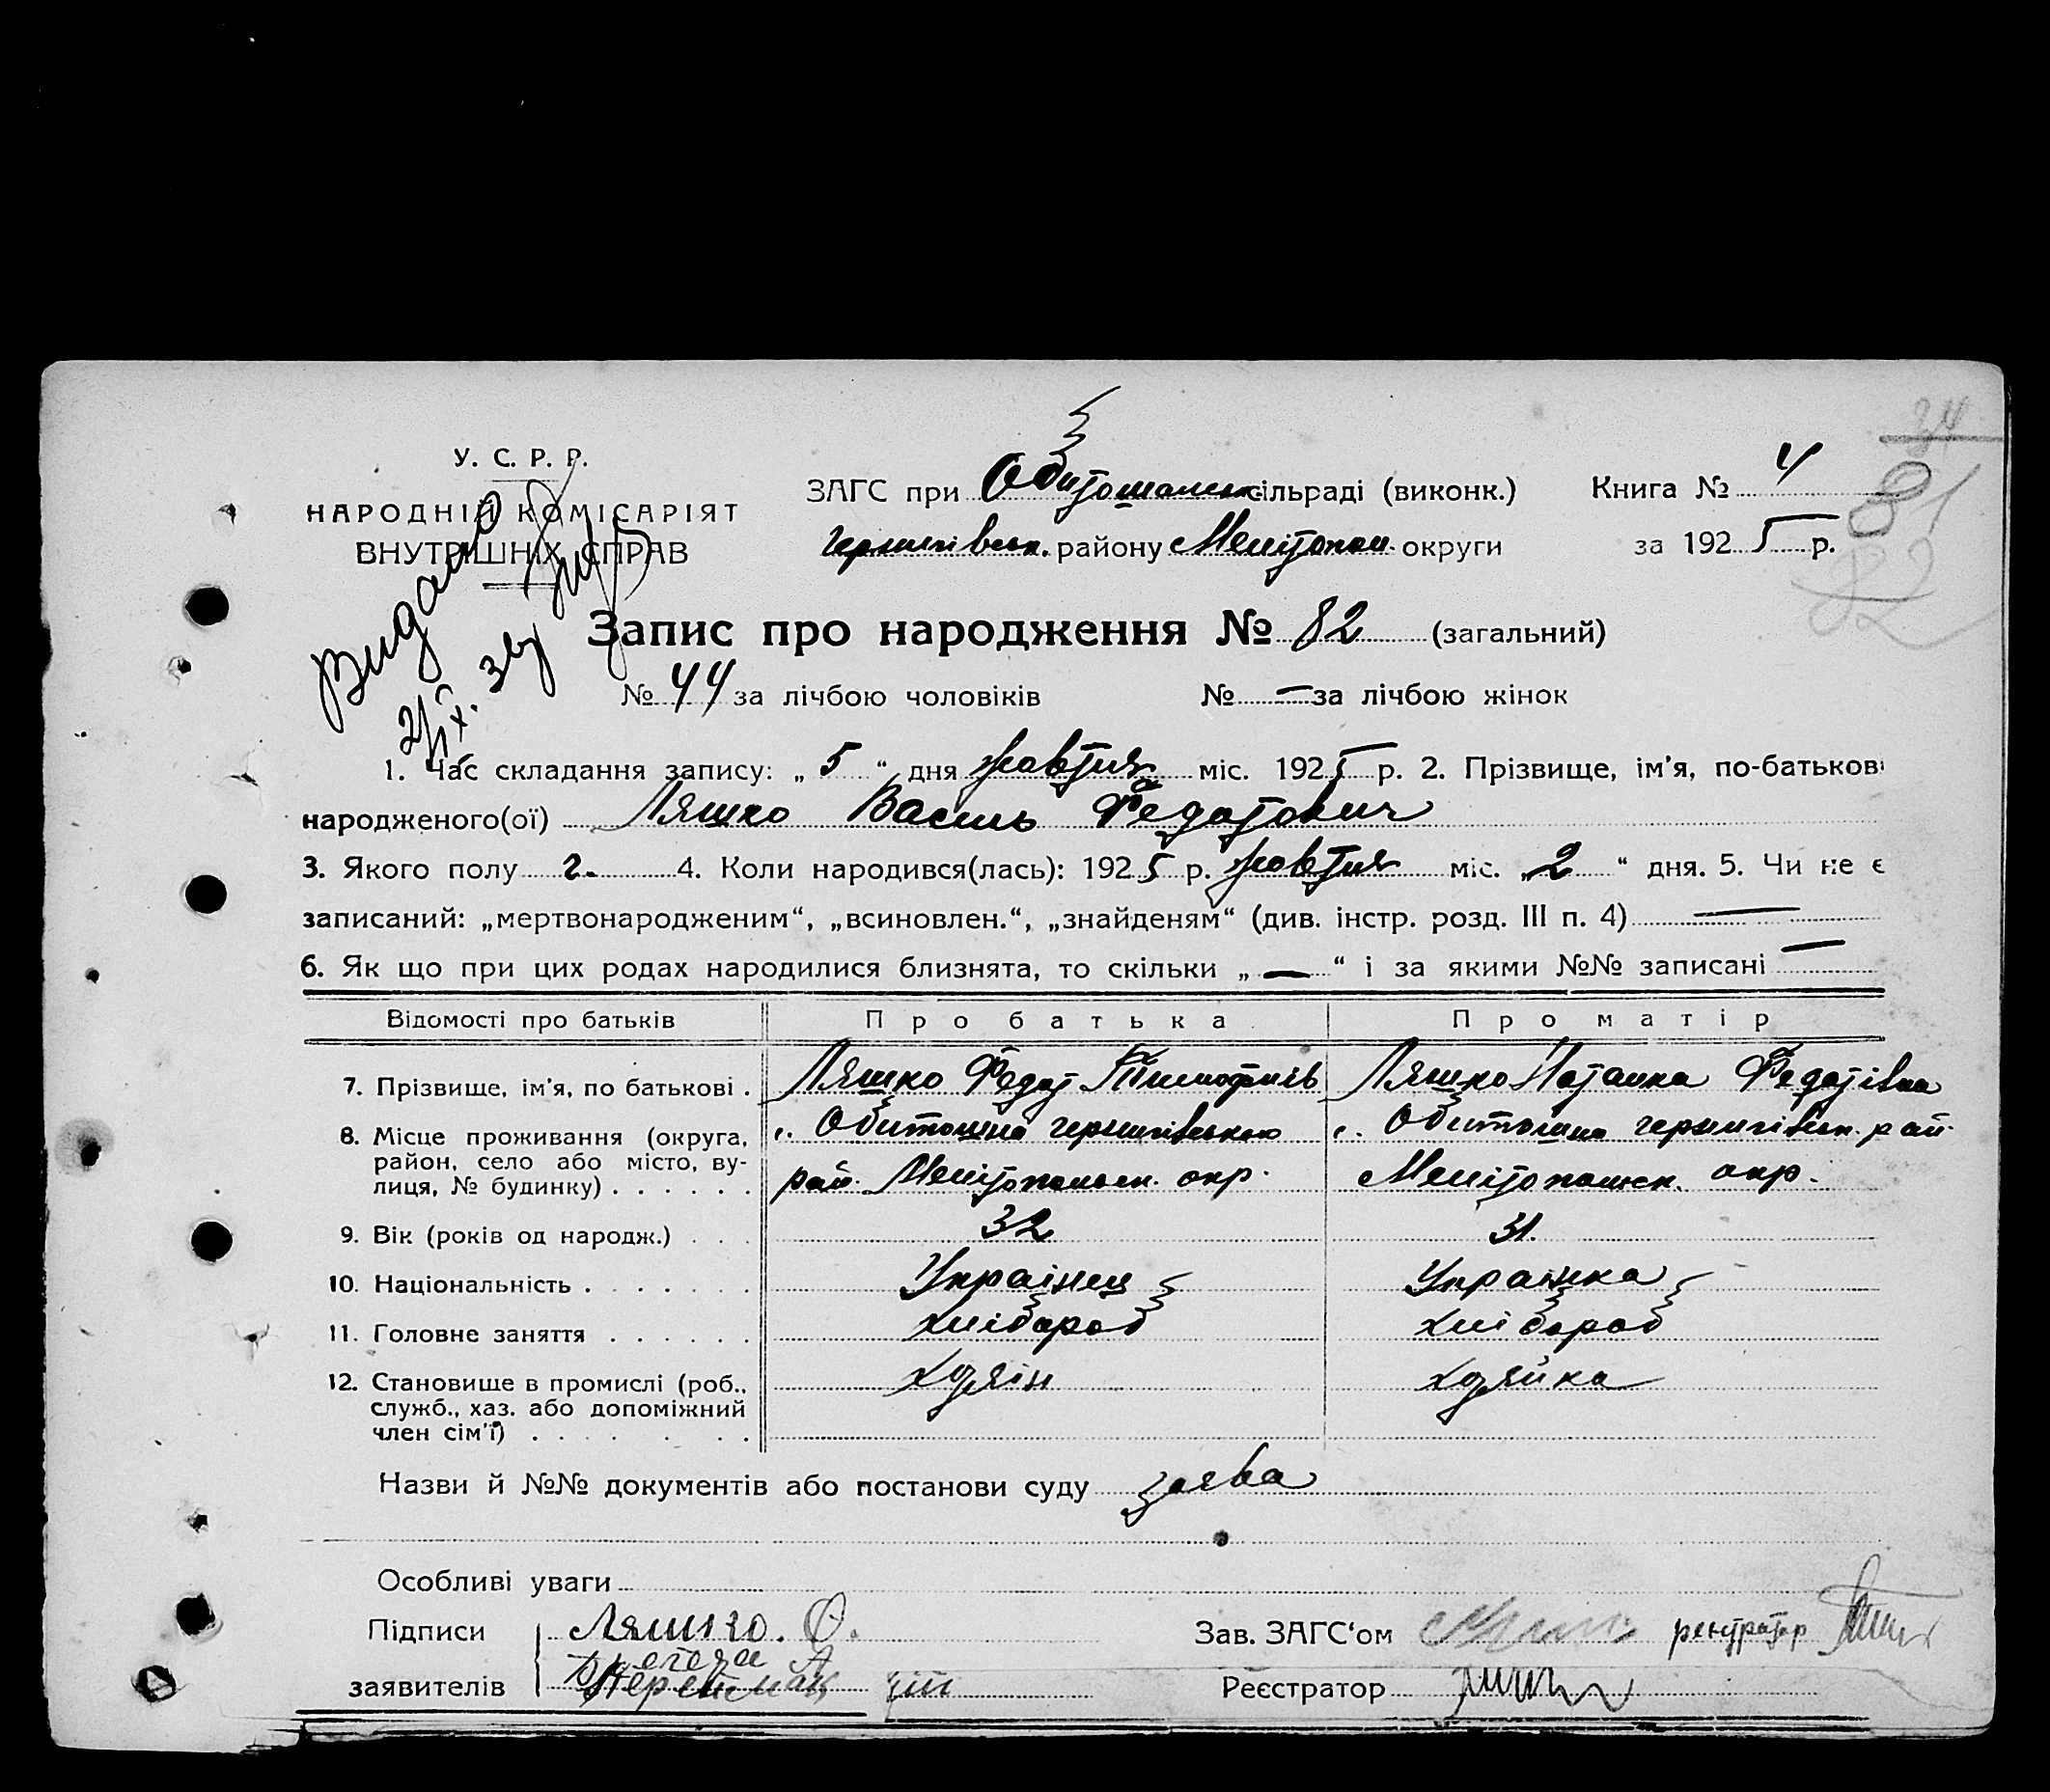 34
81
82
У. С. Р. Р.
НАРОДНІЙ КОМІСАРІЯТ
ВНУТРІШНІХ СПРАВ
ЗАГС при Обиточанськ. сільраді (виконк.)
Книга № 4
Чернигівськ. району Мелітопол. округи
за 1925 р.
Видано
Запис про народження № 82 (загальний)
№ 44 за лічбою чоловіків № — за лічбою жінок
1. Час складання запису: „ 5 “ дня жовтня міс. 1925 р. 2. Прізвище, ім’я, по-батькові
народженого(ої) Ляшко Василь Федотович
3. Якого полу ч. 4. Коли народився(лась): 1925 р. жовтня міс. „ 2 “ дня. 5. Чи не є
записаний: „мертвонародженим“, „всиновлен.“, „знайденям“ (див. інстр. розд. III п. 4) —
6. Як що при цих родах народилися близнята, то скільки „ — “ і за якими №№ записані —
Відомості про батьків Про батька Про матір
7. Прізвище, ім’я, по батькові . Ляшко Федот Тимофиів Ляшко Наталка Федотівна
8. Місце проживання (округа, район, село або місто, вулиця, № будинку) . . . . . .
с. Обиточна Чернигівського
рай. Мелітопольск. окр.
с. Обиточна Чернигівськ. рай.
Мелітопольск. окр.
9. Вік (років од народж.) . . . 32 31.
10. Національність . . . . . . Українец Українка
11. Головне заняття . . . . . . хлібороб хлібороб
12. Становище в промислі (роб., служб., хаз. або допоміжний член сім’ї) . . . . . . хозяін хозяйка
Назви й №№ документів або постанови суду заява
Особливі уваги
Підписи Ляшко. Ф.
Зав. ЗАГС‘ом реєстратор
заявителів
Реєстратор